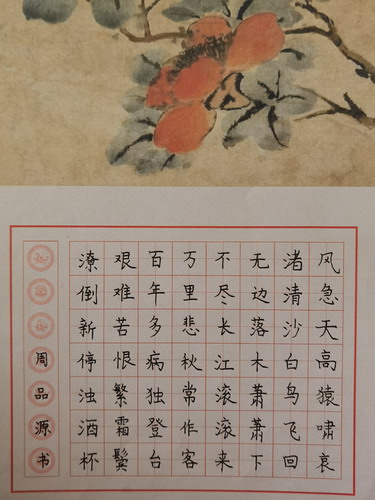 风急天高猿啸哀
渚清沙白鸟飞回
无边落木萧萧下
不尽长江滚滚来
万里悲秋常作客
百年多病独登台
艰难苦恨繁霜鬓
潦倒新停浊酒杯
周品源书